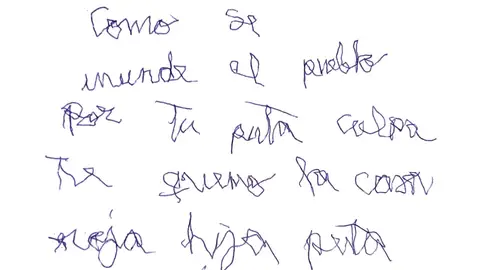 Como se
inunde el pueblo
Por Tu puta culpa
Te quemo la casa
roja hija puta